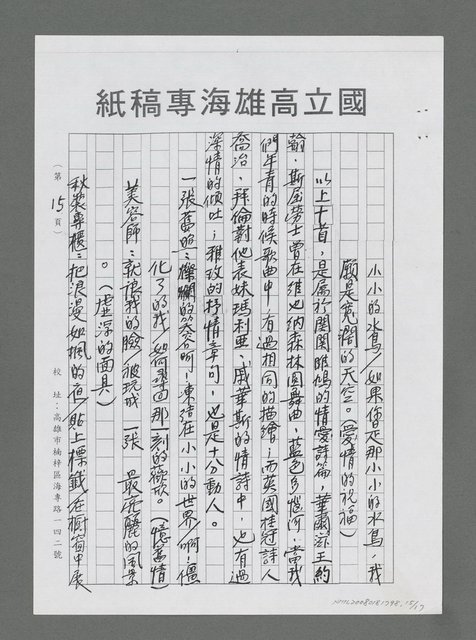 國立高雄海專稿紙
小小的水鳥／如果僅是那小小的水鳥，我
願是寬濶的天空。（愛情的祝福）
以上十首，是屬於關關雎鳩的情愛詩篇，華爾滋王約
翰．斯屈勞士曾在維也納森林圓舞曲，藍色多惱河，當我
們年青的時候歌曲中，有過相同的描繪；而英國桂冠詩人
喬治．拜倫對他表妹瑪利亞．戚華斯的情詩中，也有過
深情的傾吐；雅致的抒情章句，也是十分動人。
一張舊照：燦爛的笑容啊，凍結在小小的世界／啊，僵
化了的我／如何尋回那一刻的
（憶舊情）
美容師：就讓我的臉／被玩成一張 最亮麗的風景
。（虛浮的面具）
秋裝專櫃：把浪漫如楓的夜／貼上標籤／在櫥窗中展
（第15頁）
校址：高雄市楠梓區海專路一四二號
NML20080181798, 15/17